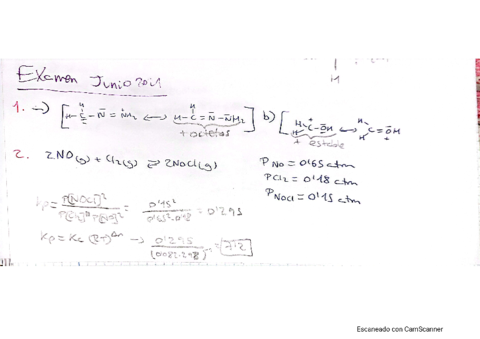 Examen Junio 2021
1. → a) [H-C-N̄=NH₂ ⟷ H-C=N̄-N̄H₂] b) [H-C-ŌH ⟷ C=ŌH]
H H H H
+ octetos + estable
2. 2NO(g) + Cl₂(g) ⇌ 2NOCl(g) P NO = 0'65 atm
P Cl₂ = 0'18 atm
P NOCl = 0'15 atm
Kp = P[NOCl]² / P[Cl₂] P[NO]² = 0'15² / 0'65²·0'18 = 0'295
Kp = Kc (RT)^Δn → 0'295 / (0'082·298)⁻¹ = 7'2
Escaneado con CamScanner